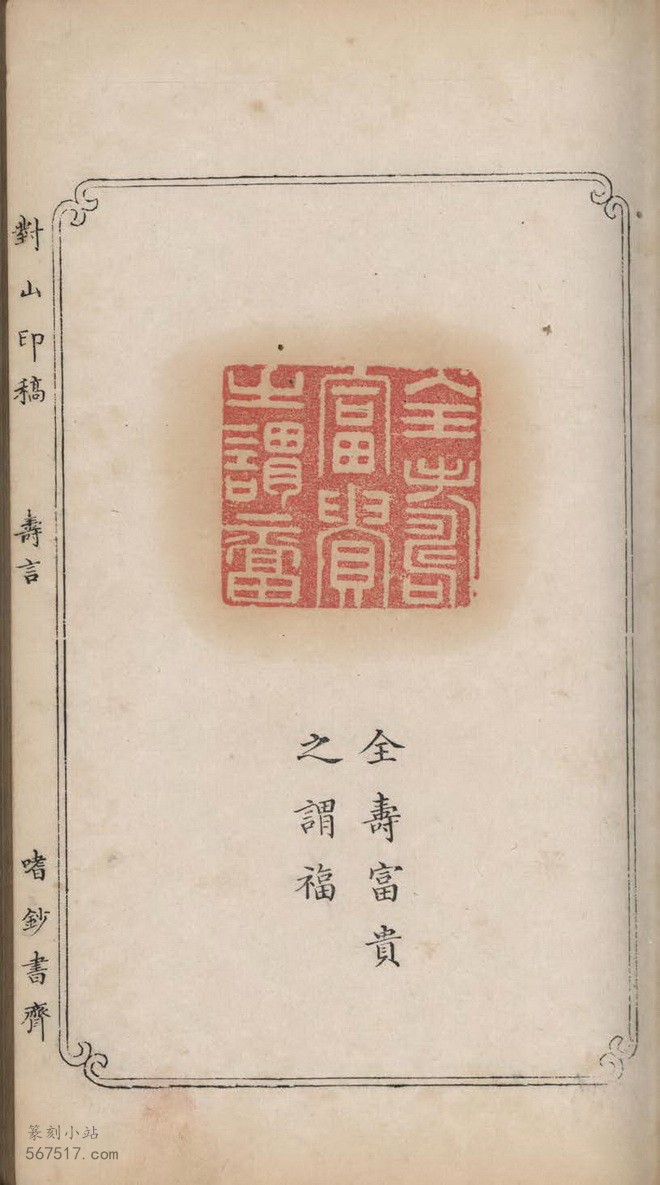 全壽富貴
之謂福
全壽富貴之謂富
對山印稿 壽言 嗜鈔書齊
篆刻小站
567517.com